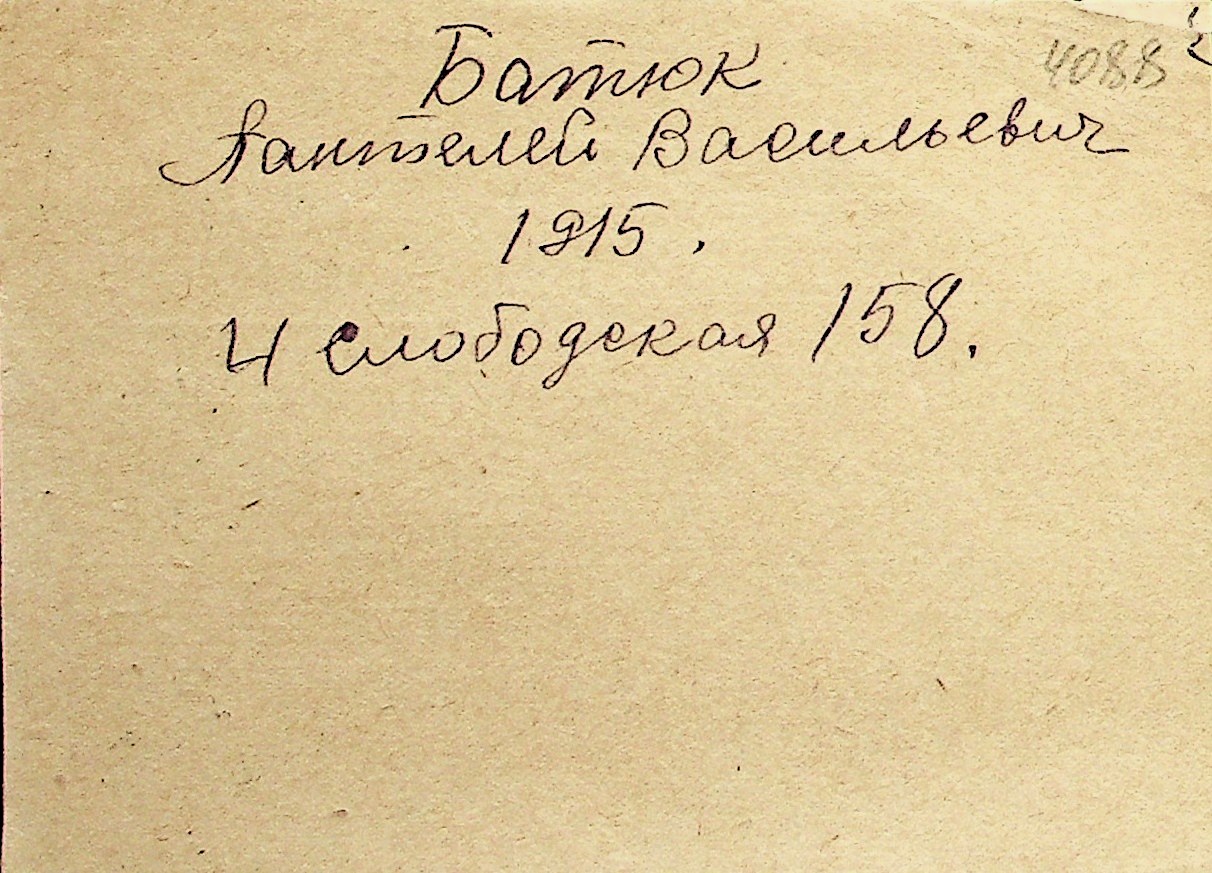 4088
Батюк
Пантелей Васильевич
1915.
Ч Слободская 158.